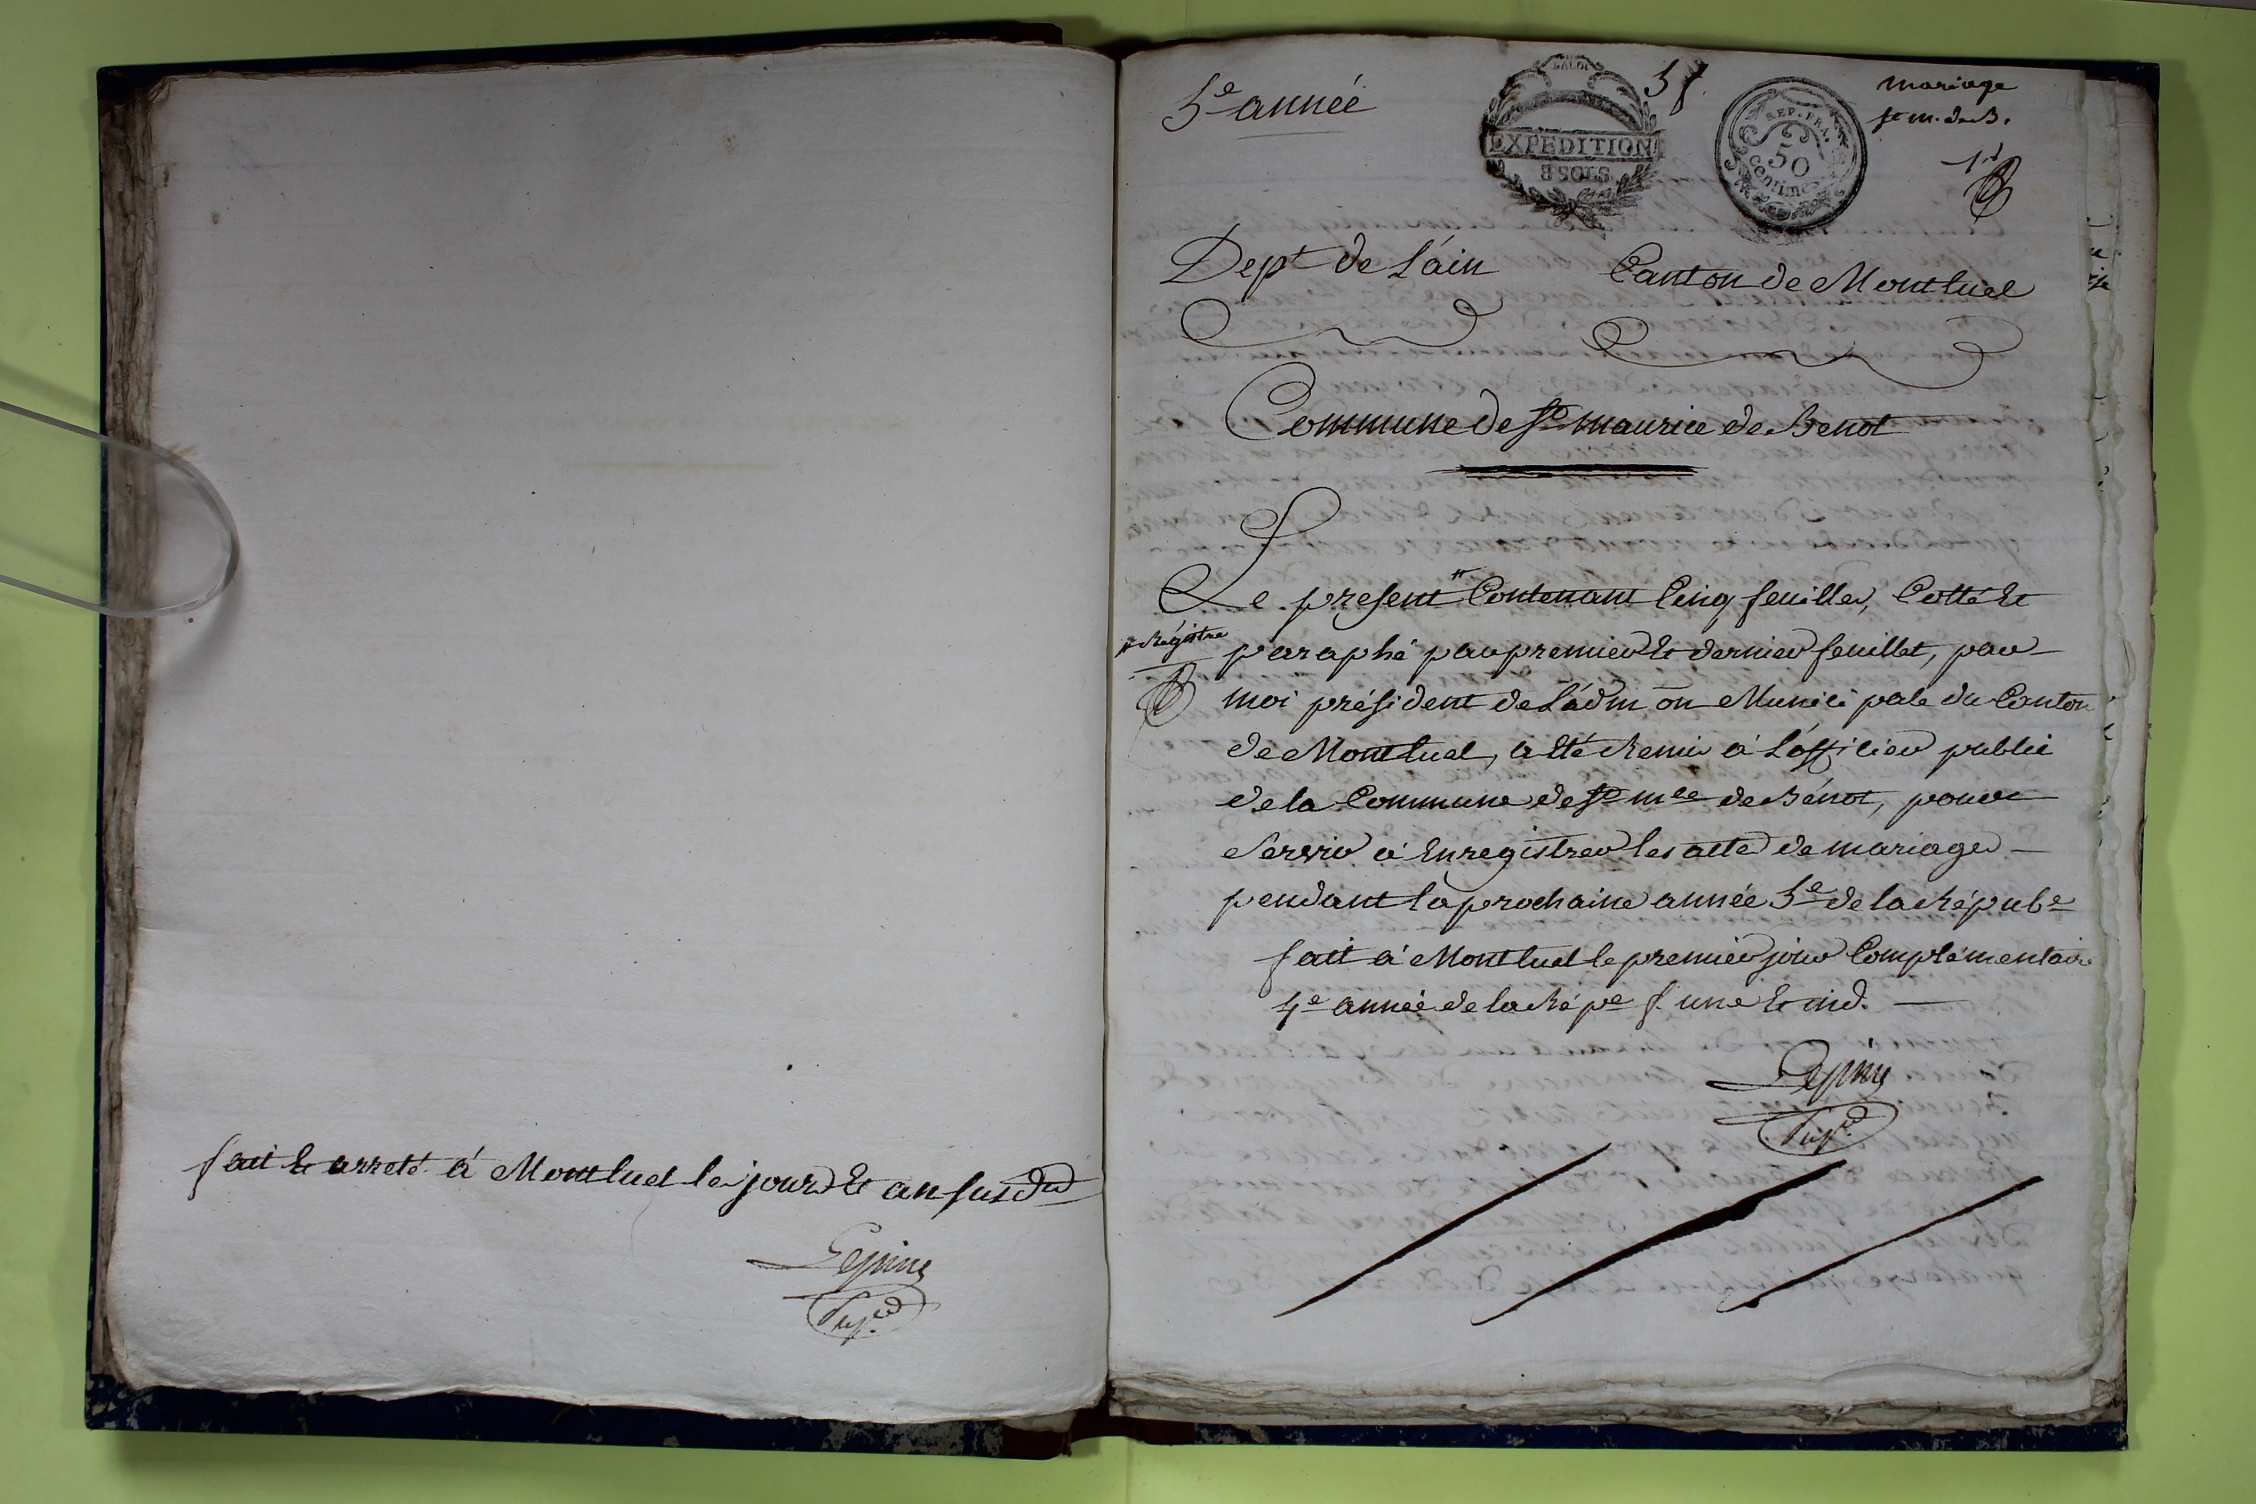 fait et arreté à Montluel les jour et an susd.
Lepine
Presid.
5e année
EXPEDITION
8 SOLS
REP. FRA.
50
centimes
mariage
st m. de B.
1er
Dept de L'ain
Canton de Montluel
Commune de St maurice de Benot
Le present # Contenant Cinq feuilles, Cotté et
# Régistre
paraphé par premier et dernier feuillet, par
moi président de L'admon Municipale du Canton
de Montluel, a été Remis à L'officier public
de la Commune de St mce de Bénot, pour
Servir à Enregistrer les acte de mariages
pendant la prochaine année 5e de la Répube
fait à Montluel le premier jour Complémentaire
4e année de la Répe f. une et ind.
Lepine
Presid.